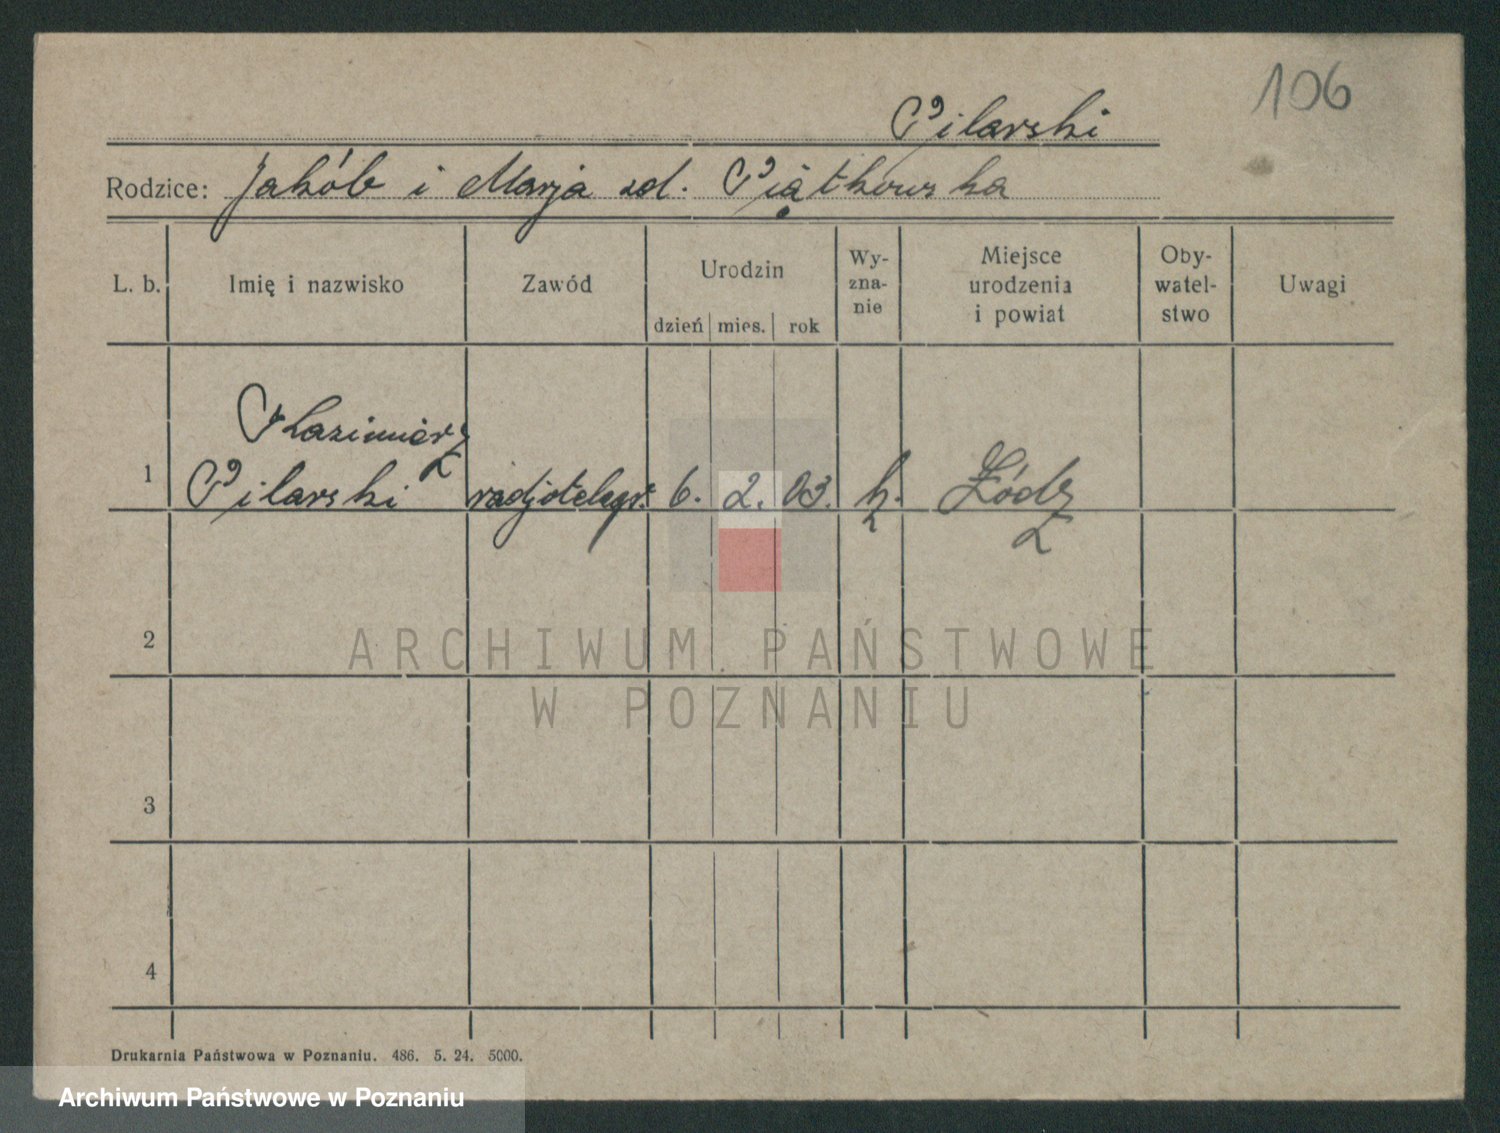 106
Pilarski
Rodzice: Jakób i Marja zd. Piątkowska
L. b. Imię i nazwisko Zawód Urodzin dzień mies. rok Wy-zna-nie Miejsce urodzenia i powiat Oby-watel-stwo Uwagi
Kazimierz
1 Pilarski radjotelegr. 6. 2. 03. k. Łódź
2
ARCHIWUM PAŃSTWOWE
W POZNANIU
3
4
Drukarnia Państwowa w Poznaniu. 486. 5. 24. 5000.
Archiwum Państwowe w Poznaniu